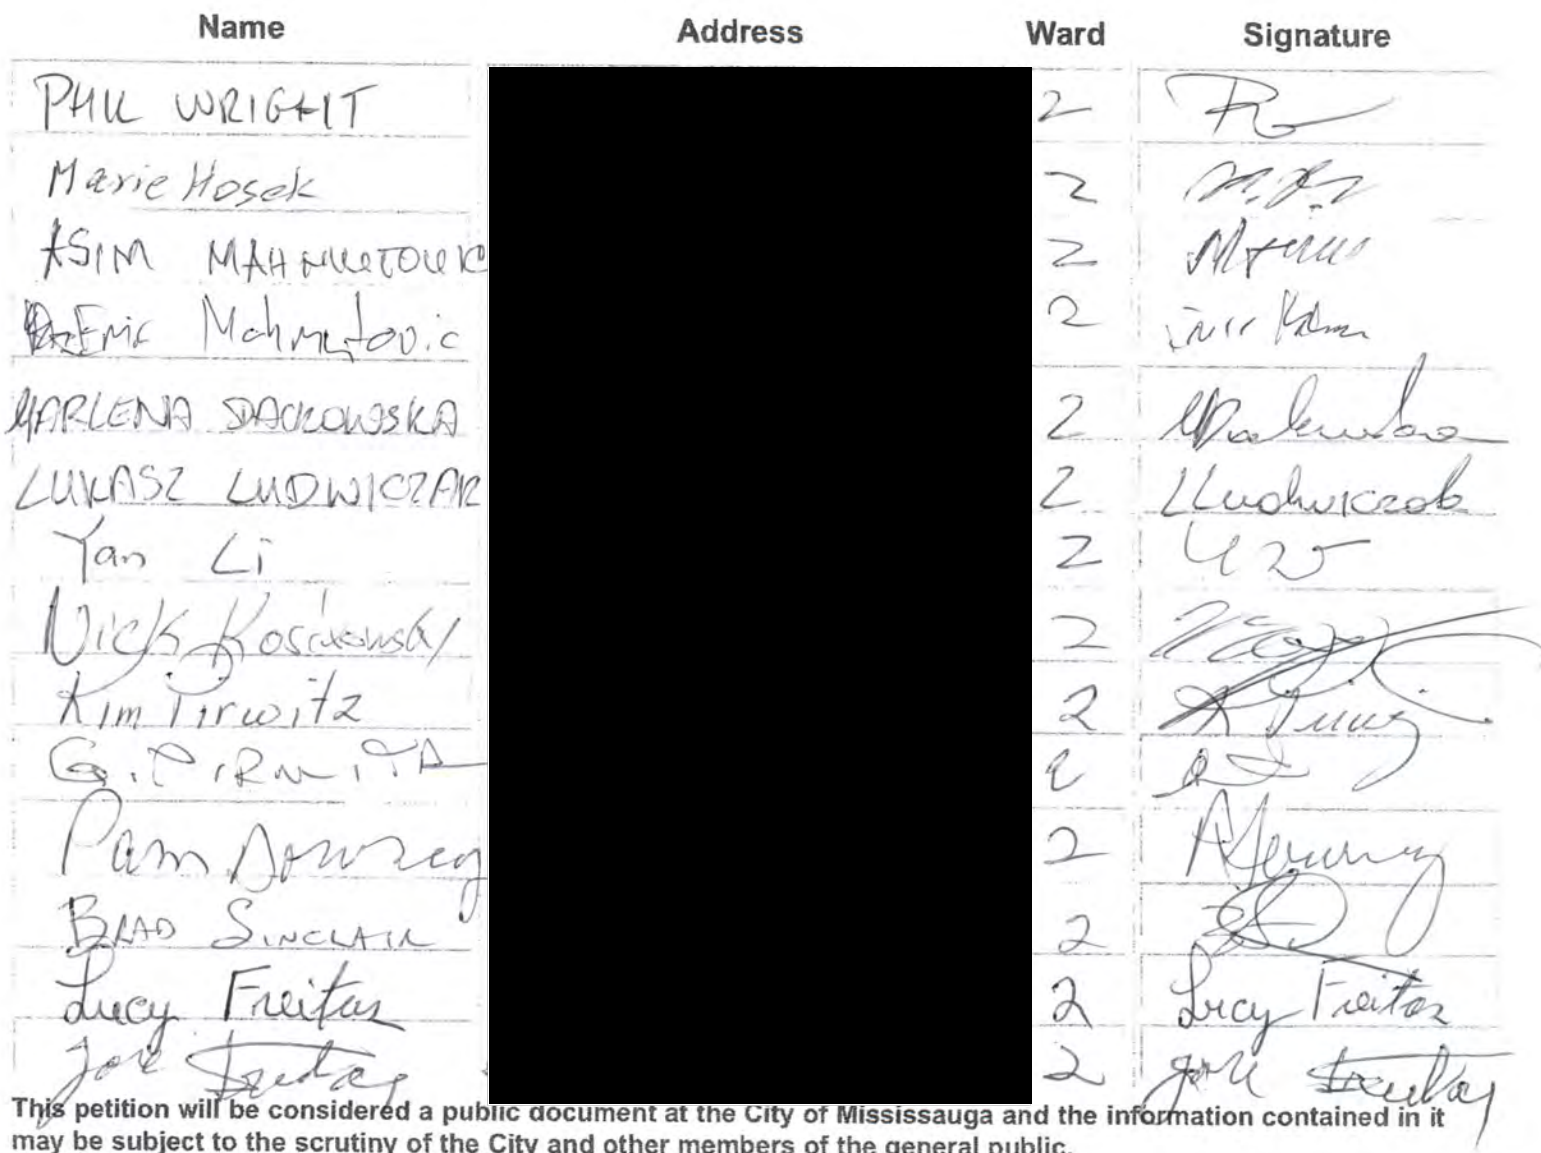 Name Address Ward Signature
PHIL WRIGHT 2
Marie Hosek 2
ASIM MAHMUTOVIC 2
Emic Mahmutovic 2
MARLENA DACKOWSKA 2
LUKASZ LUDWICZAK 2 LLudwiczak
Yan Li 2
Nick 2
Kim Pirwitz 2
G. PIRWITZ 2
Pam 2
BRAD SINCLAIR 2
Lucy Freitas 2 Lucy Freitas
Jose Freitas 2 Jose Freitas
This petition will be considered a public document at the City of Mississauga and the information contained in it
may be subject to the scrutiny of the City and other members of the general public.